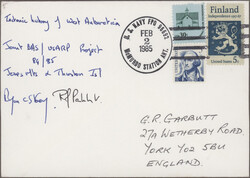 Tectonic history of West Antarctica
Joint BAS / USARP Project
84/85
Jones Mts & Thurston Isl
U.S. NAVY FPO
FEB
2
1985
McMURDO STATION ANT.
Finland
Independence 1917-67
5c
G.R. GARBUTT
27A WETHERBY ROAD
YORK YO2 5BU
ENGLAND.